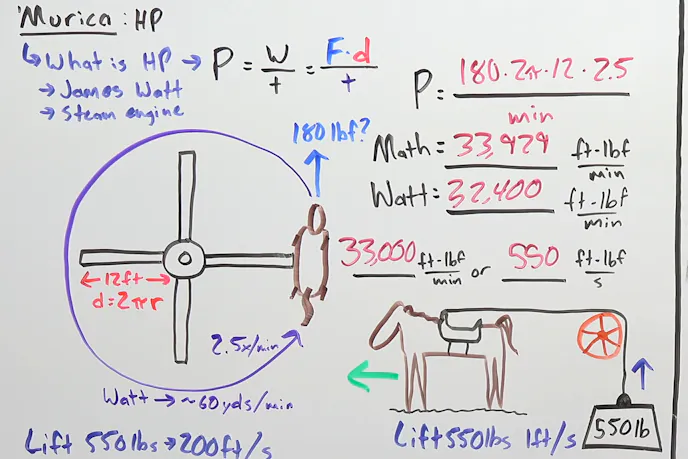 'Murica: HP
↳ What is HP → P = W/t = F·d/t
→ James Watt
→ Steam engine
P = 180·2π·12·2.5 / min
180 lbf?
Math = 33,929 ft-lbf/min
Watt = 32,400 ft-lbf/min
33,000 ft-lbf/min or 550 ft-lbf/s
← 12ft →
d=2πr
2.5x/min
Watt → ~60yds/min
550lb
Lift 550lbs → 200ft/s
Lift 550lbs 1ft/s